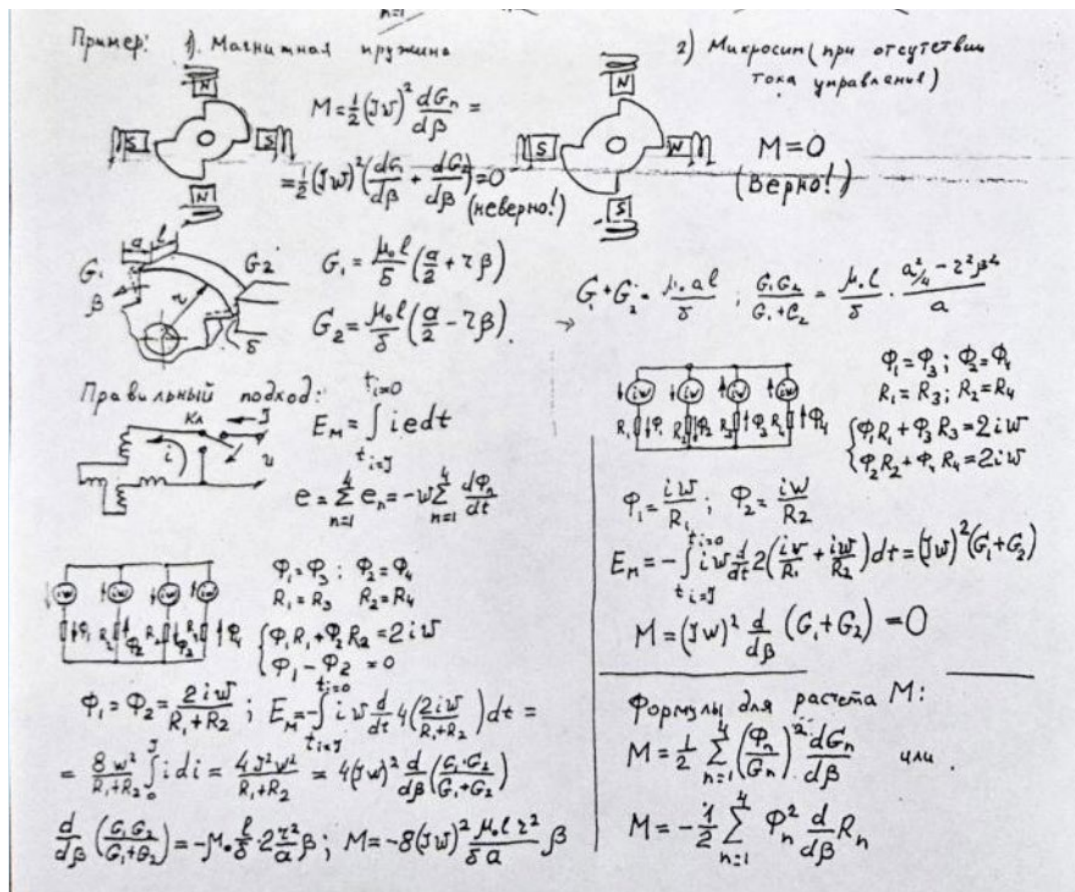 n=1
Пример: 1). Магнитная пружина
N
S
S
N
M = 1/2 (Jw)² dGn/dβ =
= 1/2 (Jw)² (dG1/dβ + dG2/dβ) = 0
(неверно!)
a l
G1
G2
β
r
δ
G1 = μ0 l/δ (a/2 + rβ)
G2 = μ0 l/δ (a/2 - rβ).
Правильный подход:
Кл
J
i
u
Eм = ∫ i e dt
ti=0
ti=J
e = Σ en = -w Σ dΦn/dt
4
n=1
4
n=1
iw iw iw iw
Φ1 R2 Φ2 Φ4
Φ1 = Φ3 ; Φ2 = Φ4
R1 = R3 R2 = R4
{Φ1 R1 + Φ2 R2 = 2iw
Φ1 - Φ2 = 0
Φ1 = Φ2 = 2iw/(R1+R2) ; Eм = -∫ i w d/dt 4(2iw/(R1+R2)) dt =
ti=0
ti=J
= 8w²/(R1+R2) ∫ i di = 4J²w²/(R1+R2) = 4(Jw)² d/dβ (G1·G2/(G1+G2))
J
0
d/dβ (G1G2/(G1+G2)) = -μ0 l/δ · 2 r²/a β ; M = -8(Jw)² μ0 l r²/(δ a) β
2) Микросин (при отсутствии
тока управления)
S
S
M = 0
(верно!)
→ G1 + G2 = μ0 a l/δ ; G1G2/(G1+G2) = μ0 l/δ · (a²/4 - r²β²)/a
iw iw iw iw
R1 Φ1 R2 Φ2 R3 Φ3 Φ4
Φ1 = Φ3 ; Φ2 = Φ4
R1 = R3 ; R2 = R4
{Φ1 R1 + Φ3 R3 = 2iw
Φ2 R2 + Φ4 R4 = 2iw
Φ1 = iw/R1 ; Φ2 = iw/R2
Eм = -∫ i w d/dt 2(iw/R1 + iw/R2) dt = (Jw)² (G1+G2)
ti=0
ti=J
M = (Jw)² d/dβ (G1+G2) = 0
Формулы для расчета M:
M = 1/2 Σ (Φn/Gn)² dGn/dβ или
4
n=1
M = -1/2 Σ Φn² d/dβ Rn
4
n=1